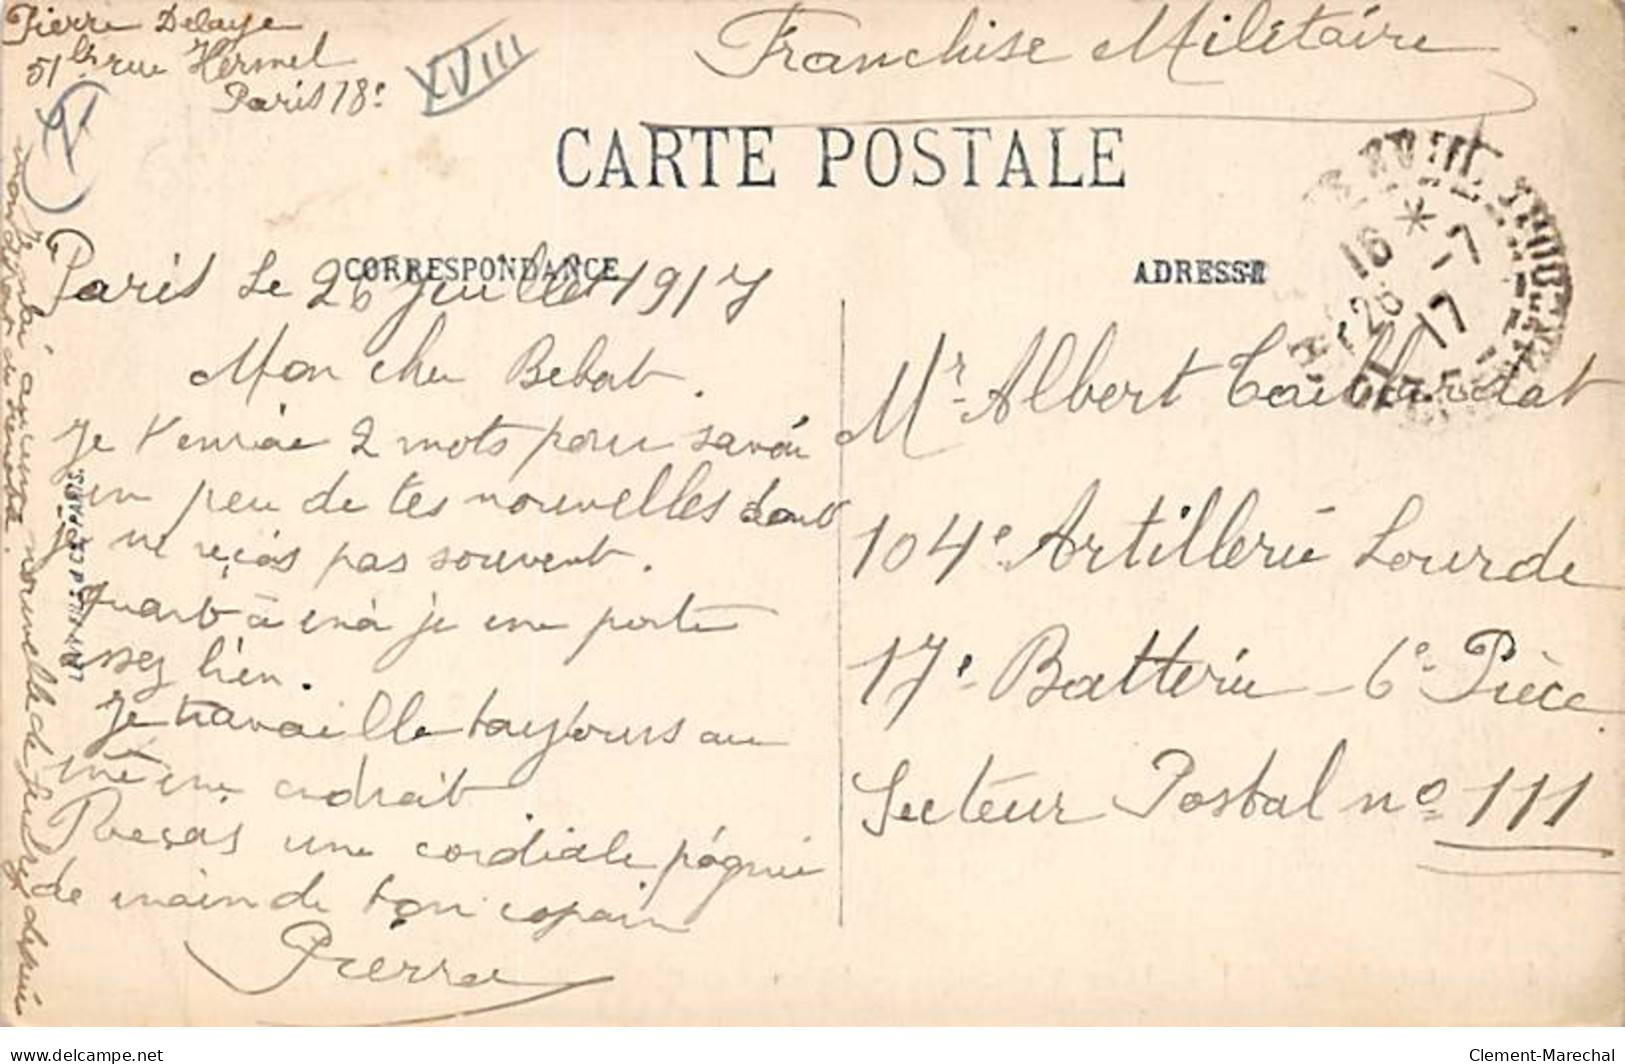 Pierre Delaye
51 bis rue Hermel
Paris 18e
XVIII
Franchise Militaire
CARTE POSTALE
CORRESPONDANCE
ADRESSE
16 * -7
26 17
Paris Le 26 Juillet 1917
Mon cher Bebat.
Je t'envoie 2 mots pour savoir
un peu de tes nouvelles dont
je ne reçois pas souvent.
Quant à moi je me porte
assez bien.
Je travaille toujours au
même endroit.
Reçois une cordiale pognie
de main de ton copain
Pierre
Je n'ai aucune nouvelle de depuis
mon
PARIS.
Mr. Albert Taillardat
104e Artillerie Lourde
17e Batterie - 6e Pièce
Secteur Postal no 111
Clement-Marechal
www.delcampe.net